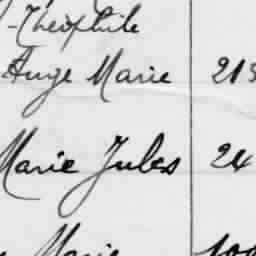 -Théophile
Ange Marie 213
Marie Jules 24
Marie